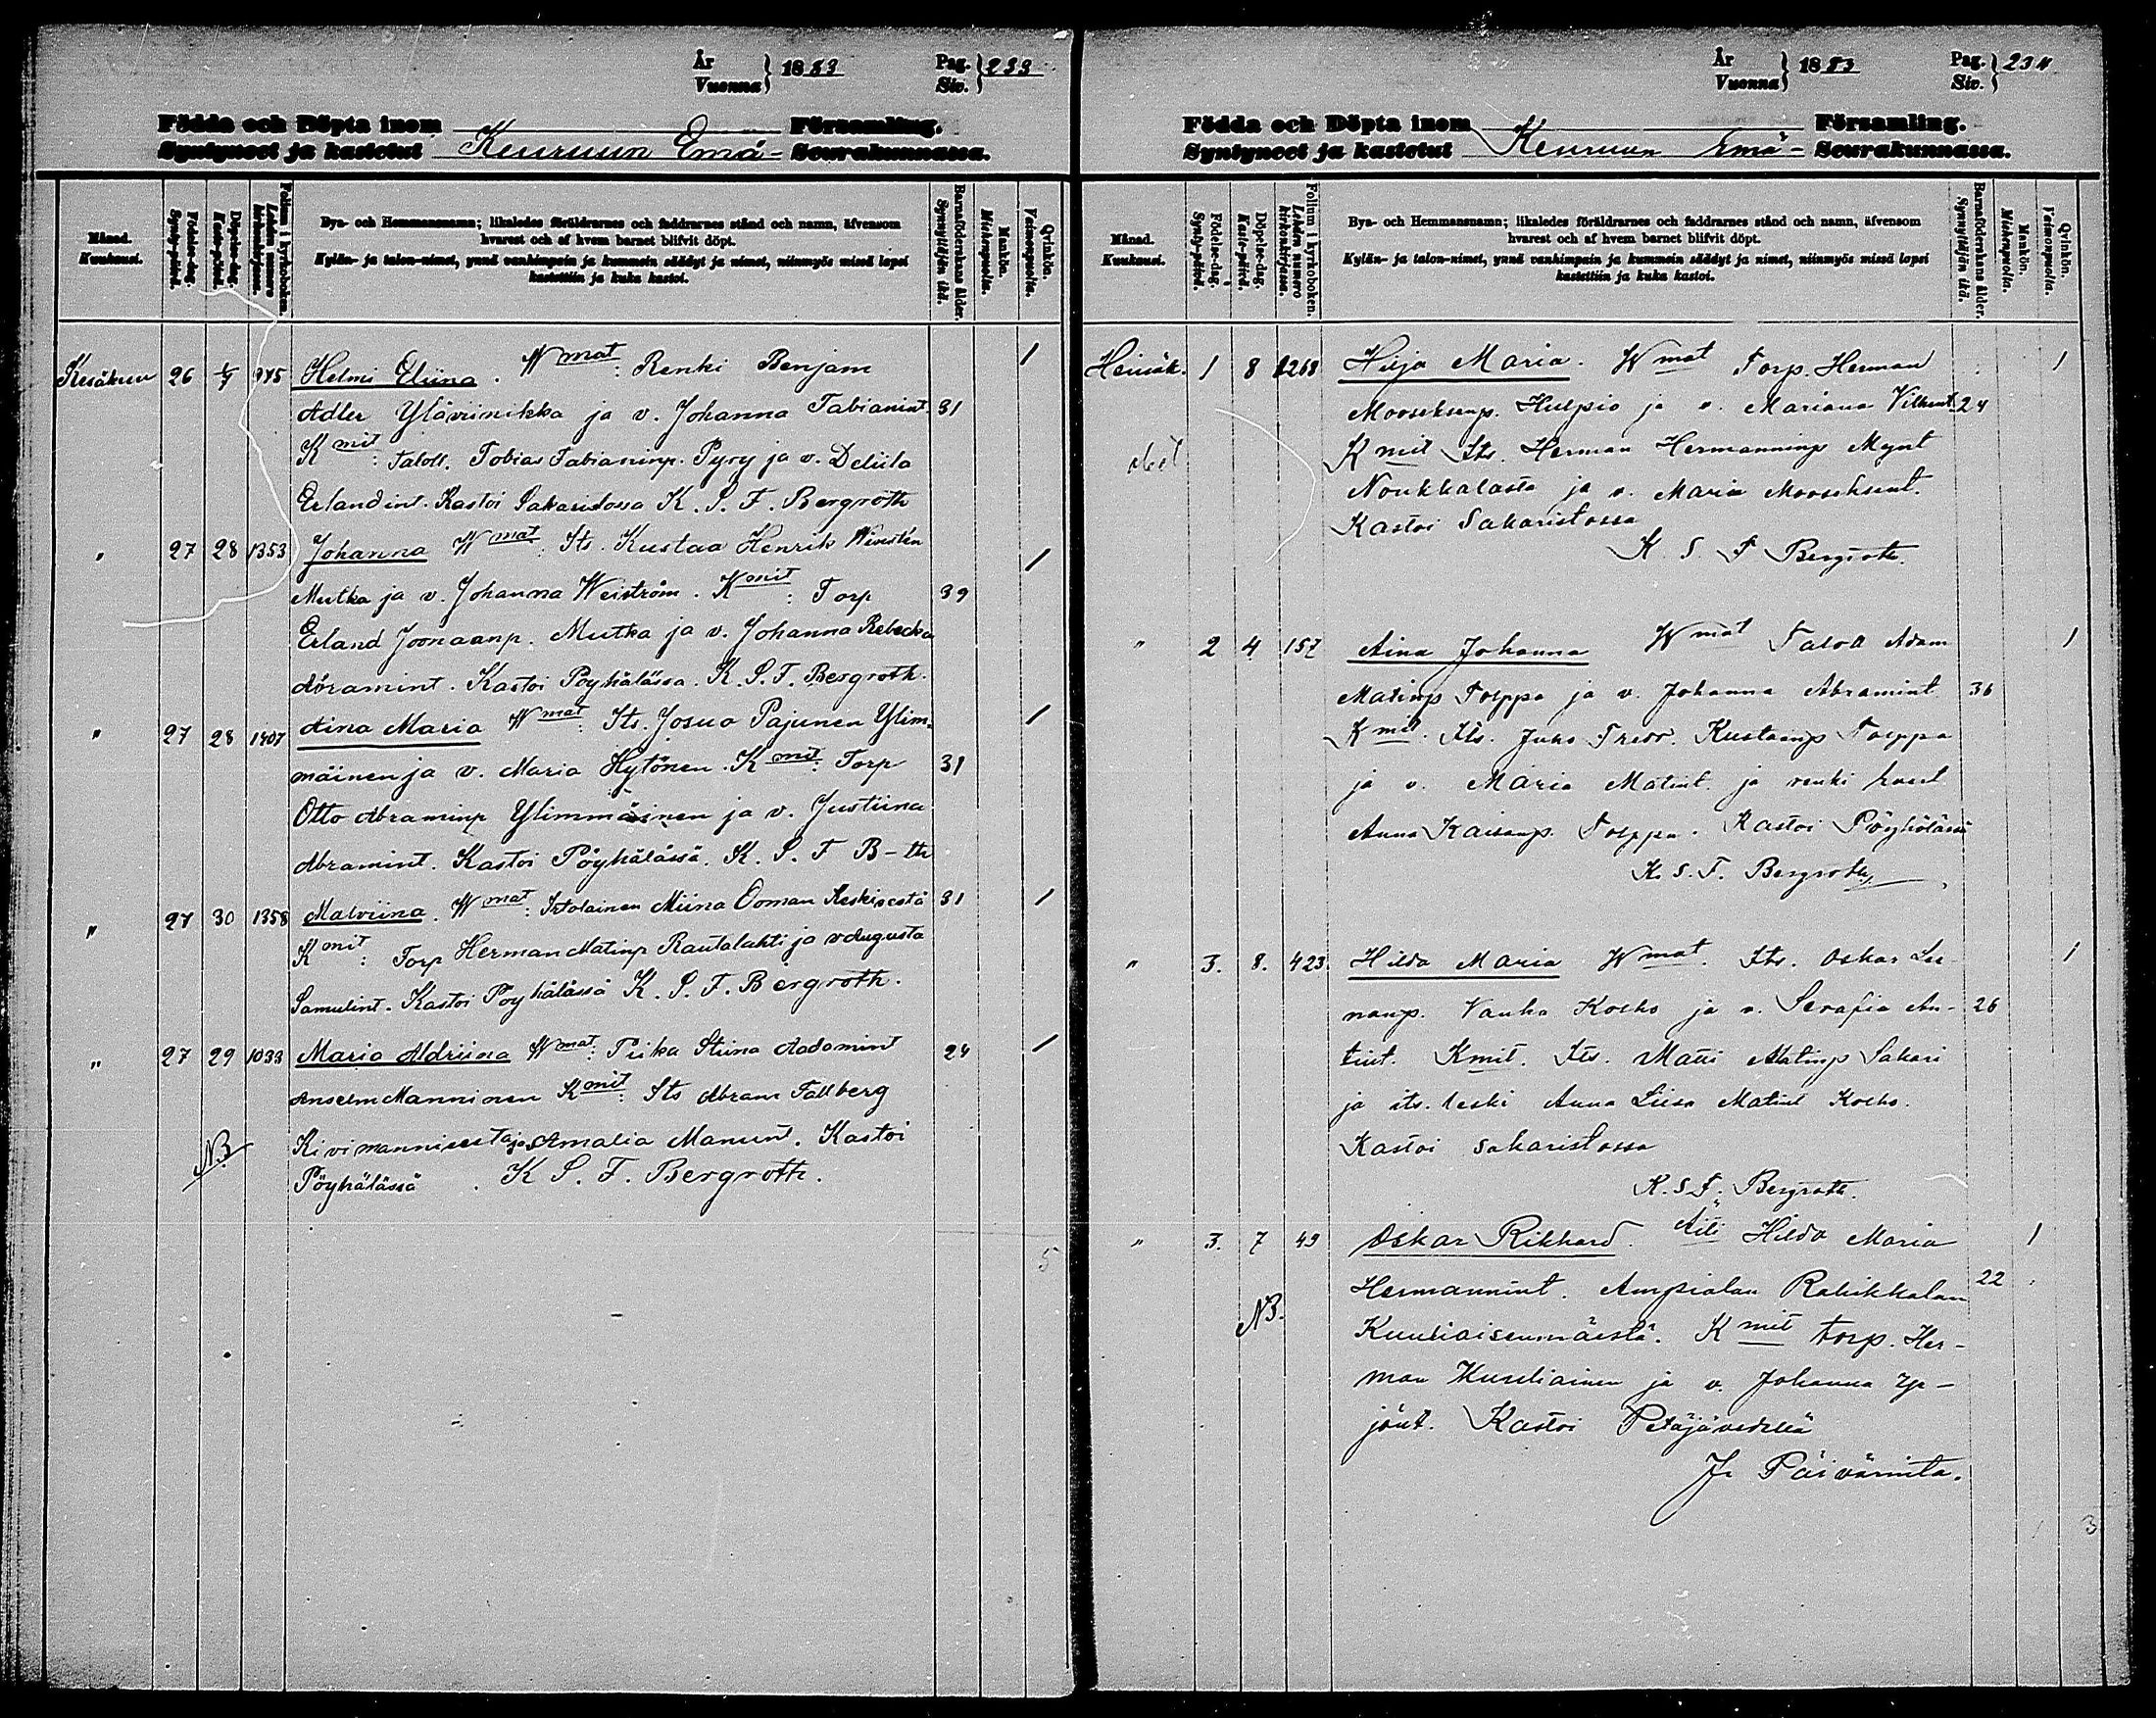 År
Vuonna } 1883
Pag.
Siv. } 233
Födda och Döpta inom Församling.
Syntyneet ja kastetut Keuruun Emä- Seurakunnassa.
Månad.
Kuukausi.
Födelse-dag.
Synty-päivä.
Döpelse-dag.
Kaste-päivä.
Folium i kyrkoboken.
Lehden numero
kirkonkirjassa.
Bya- och Hemmansnamn; likaledes föräldrarnes och faddrarnes stånd och namn, äfvensom
hvarest och af hvem barnet blifvit döpt.
Kylän- ja talon-nimet, ynnä vanhimpain ja kummein säädyt ja nimet, niinmyös missä lapsi
kastettiin ja kuka kastoi.
Barnaföderskans ålder.
Synnyttäjän ikä.
Mankön.
Miehenpuolia.
Qvinkön.
Vaimonpuolia.
Kesäkuu 26 945 Helmi Eliina. Wmat: Renki Benjam 1
Adler Ylävinikka ja v. Johanna Fabianint. 31
Kmit: Taloll. Tobias Fabianinp. Pyry ja v. Deliila
Erlandint. Kastoi Sakaristossa K. S. F. Bergroth
" 27 28 1353 Johanna Wmat: Its. Kustaa Henrik 1
Mutka ja v. Johanna Weiström. Kmit: Torp 39
Erland Joonaanp. Mutka ja v. Johanna Rebecka
Abramint. Kastoi Pöyhälässä. K. S. F. Bergroth.
" 27 28 1407 Aina Maria Wmat: Its. Josua Pajunen Ylim- 1
mäinen ja v. Maria Hytönen. Kmit: Torp 31
Otto Abraminp Ylimmäinen ja v. Justiina
Abramint. Kastoi Pöyhälässä. K. S. F B-th
" 27 30 1358 Malviina. Wmat: Itolainen Miina Ooman Keskisestä 31 1
Kmit: Torp Herman Matinp Rautalahti ja v Augusta
Samulint. Kastoi Pöyhälässä K. S. F. Bergroth.
" 27 29 1033 Maria Aldriina Wmat: Piika Stiina Aadamint 24 1
Anselm Manninen Kmit: Its Abram Fallberg
Kivimannisesta ja Amalia Manunt. Kastoi
NB
Pöyhälässä. K S. F. Bergroth.
5
År
Vuonna } 1883
Pag.
Siv. } 234
Födda och Döpta inom Församling.
Syntyneet ja kastetut Keuruun Emä- Seurakunnassa.
Månad.
Kuukausi.
Födelse-dag.
Synty-päivä.
Döpelse-dag.
Kaste-päivä.
Folium i kyrkoboken.
Lehden numero
kirkonkirjassa.
Bya- och Hemmansnamn; likaledes föräldrarnes och faddrarnes stånd och namn, äfvensom
hvarest och af hvem barnet blifvit döpt.
Kylän- ja talon-nimet, ynnä vanhimpain ja kummein säädyt ja nimet, niinmyös missä lapsi
kastettiin ja kuka kastoi.
Barnaföderskans ålder.
Synnyttäjän ikä.
Mankön.
Miehenpuolia.
Qvinkön.
Vaimonpuolia.
Heinäk. 1 8 1268 Hilja Maria. Wmat Torp. Herman 1
Mooseksenp. Hulpio ja v. Mariana Vilhent. 24
Kmit Its. Herman Hermanninp Mynt
Noukkalasta ja v. Maria Mooseksent.
Kastoi Sakaristossa
K S F Bergroth.
" 2 4 157 Aina Johanna Wmat Taloll Adam 1
Matinp Torppa ja v. Johanna Abramint 36
Kmit. Its. Juho Fredr. Kustainp Torppa
ja v. Maria Matint. ja renki
Anna Kaisanp. Torppa. Kastoi Pöyhölässä
K. S. F. Bergroth
" 3. 8. 423. Hilda Maria Wmat. Its. Oskar Lee- 1
nanp. Vanha Kosho ja v. Serafia An- 26
tint. Kmit. Its. Matti Matinp Sakari
ja its. leski Anna Liisa Matint Kosho.
Kastoi sakaristossa
K. S. F. Bergroth.
" 3. 7 49 Oskar Rikhard. Äiti Hilda Maria 1
Hermannint. Ampialan Rahikkalan 22
NB.
Kuuliaisenmäestä. Kmit torp. Her-
man Kuuliainen ja v. Johanna Yr-
jönt. Kastoi Petäjävedellä
Jr Päivärinta.
3